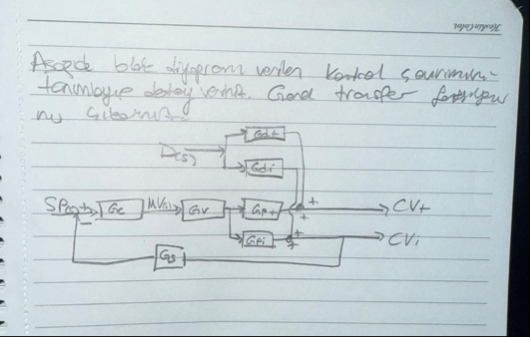 Aşağıda blok diyagramı verilen kontrol çevrimini
tanımlayıp detay veriniz. Genel transfer fonksiyonu
nu çıkarınız.
Gdt
D(s)
Gdi
SP(s) + - Gc MV(s) Gv Gpt + + CVt
Gpi + + CVi
Gs